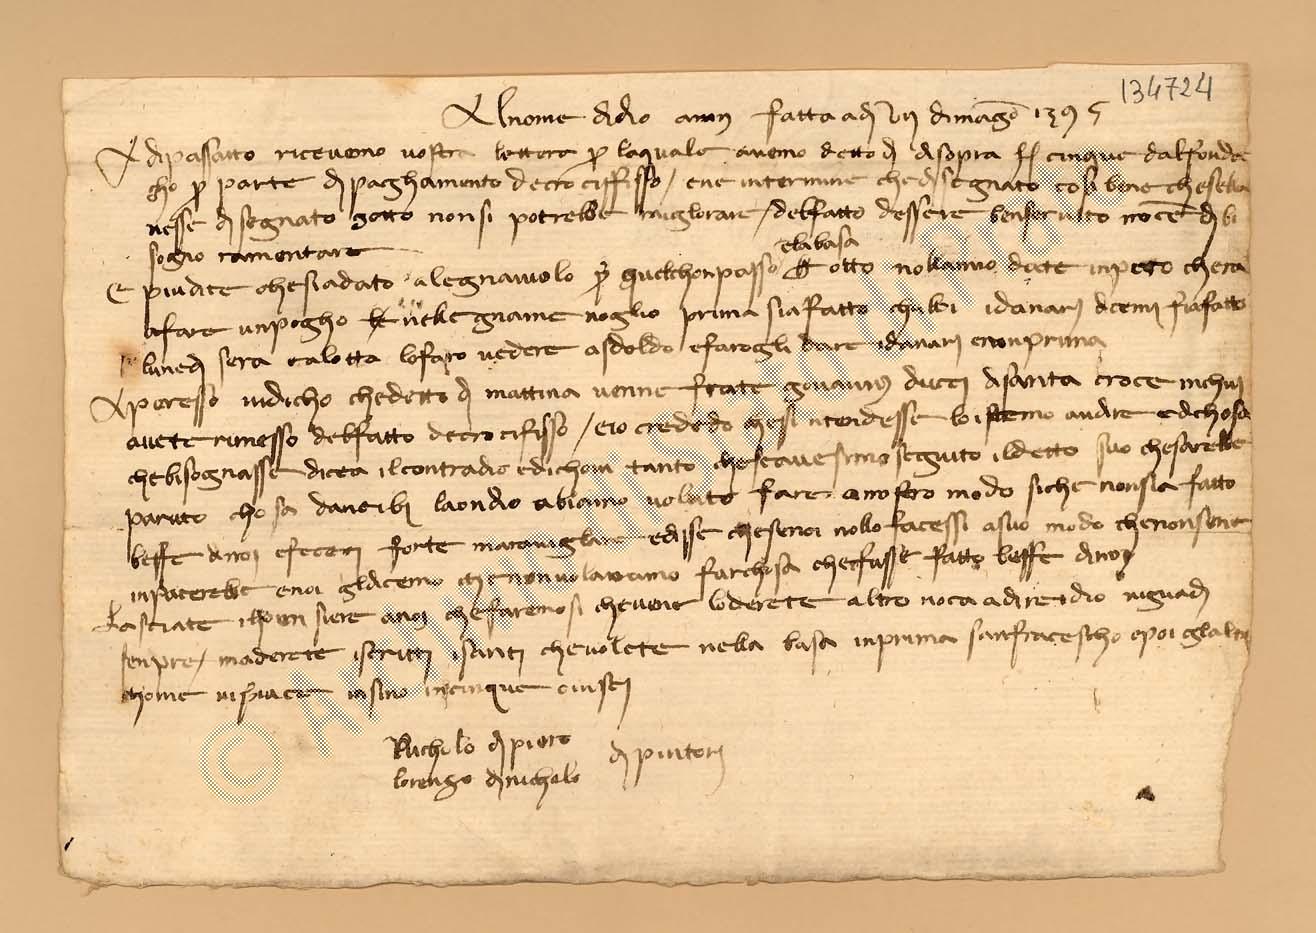 134724
Al nome di dio amen fatta adi VII di magio 1395
A di passatto ricevemo vostra lettera per la quale avemo detto di di sopra f. cinque dal fonda
cho per parte di paghamento de crociffisso / ene in termine che disegnato cosi bene che sella
vesse disegnato gotto non si potrebbe migliorare / del fatto dessere ben servito non ce di bi
sogno ramentare
ela basa
E piu dite che sia dato a legnaiuolo per quel chonpasso otto nollanno dete inpero chera
a fare un pogho legname voglio prima sia fatto abi i danari dcemi fia fatto
lunedi sera talotta lo faro vedere a sdoldo e farogli dare i danari e non prima
Apresso vi dicho che detto di mattina venne frate govanni ducci di santa croce in chui
avete rimesso del fatto de crocifisso / e io credendo chesintendesse lo istemo audire ed chosa
che bisognasse dicea il contradio e dichovi tanto che se avesimo seguito il detto suo che sarebbe
paruto chosa da verbi laondio abiamo voluto fare a nostro modo siche non sia fatto
beffe di noi e fecesi forte maravigliare e disse che se noi nollo facessi a suo modo che non sene
inpacerebbe e noi gli dicemo che non volavamo far chosa che fusse fatto beffe di noi
Lasciate il pensiere a noi che faremo si che voi ne loderete altro no ca a dire idio vi guardi
senpre / maderete iscritti i santi che volete nella basa in prima san fracescho e poi gli altri
chome vi piace insino in cinque o in sei
Nicholo di piero
lorenzo di nicholo
dipintori
© ARCHIVIO